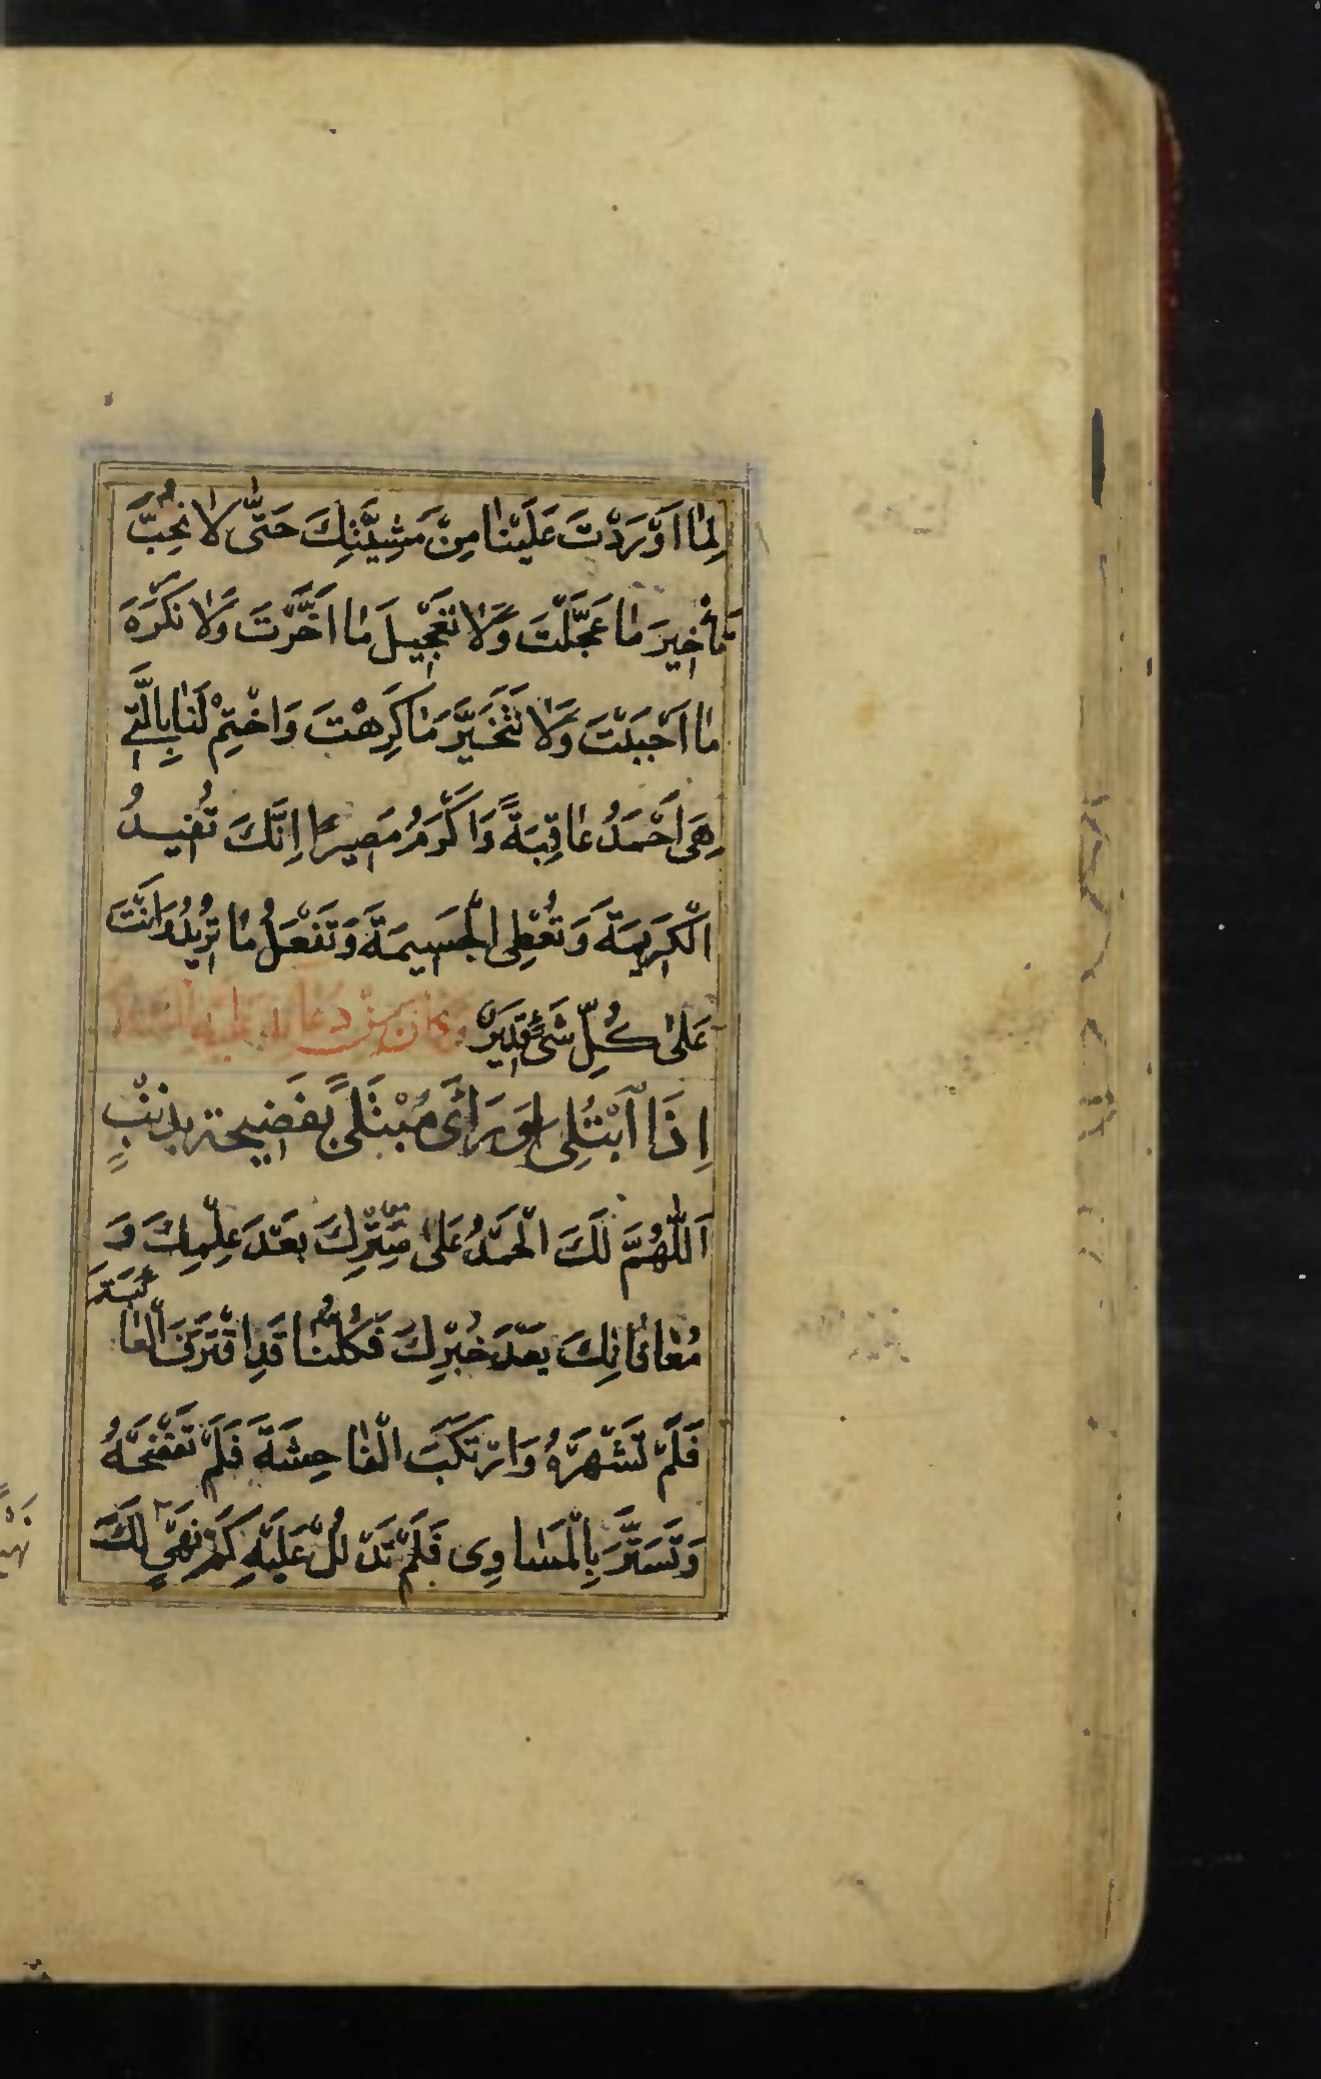 لِمٰا اَوْرَدْتَ عَلَيْنٰا مِنْ مَشِيَّتِكَ حَتّٰى لٰا نُحِبَّ
تَأْخِيرَ مٰا عَجَّلْتَ وَلٰا تَعْجِيلَ مٰا اَخَّرْتَ وَلٰا نَكْرَهَ
مٰا اَحْبَبْتَ وَلٰا نَتَخَيَّرَ مٰا كَرِهْتَ وَاخْتِمْ لَنٰا بِالَّتِي
هِيَ اَحْمَدُ عٰاقِبَةً وَاَكْرَمُ مَصِيرًا اِنَّكَ تُفِيدُ
الْكَرِيمَةَ وَتُعْطِى الْجَسِيمَةَ وَتَفْعَلُ مٰا تُرِيدُ وَاَنْتَ
عَلىٰ كُلِّ شَىْءٍ قَدِيرٌ وكان من دعائه عليه السلام
اِذَا ابْتُلِىَ اَوْ رَاَى مُبْتَلىً بفَضيحة بذَنْبٍ
اَللّٰهُمَّ لَكَ الْحَمْدُ عَلىٰ سِتْرِكَ بَعْدَ عِلْمِكَ وَ
مُعٰافٰاتِكَ بَعْدَ خُبْرِكَ فَكُلُّنٰا قَدِ اقْتَرَفَ الْعٰائِبَةَ
فَلَمْ تَشْهَرْهُ وَارْتَكَبَ الْفٰاحِشَةَ فَلَمْ تَفْضَحْهُ
وَتَسَتَّرَ بِالْمَسٰاوِى فَلَمْ تَدْلُلْ عَلَيْهِ كَمْ نَهْىٍ لَكَ